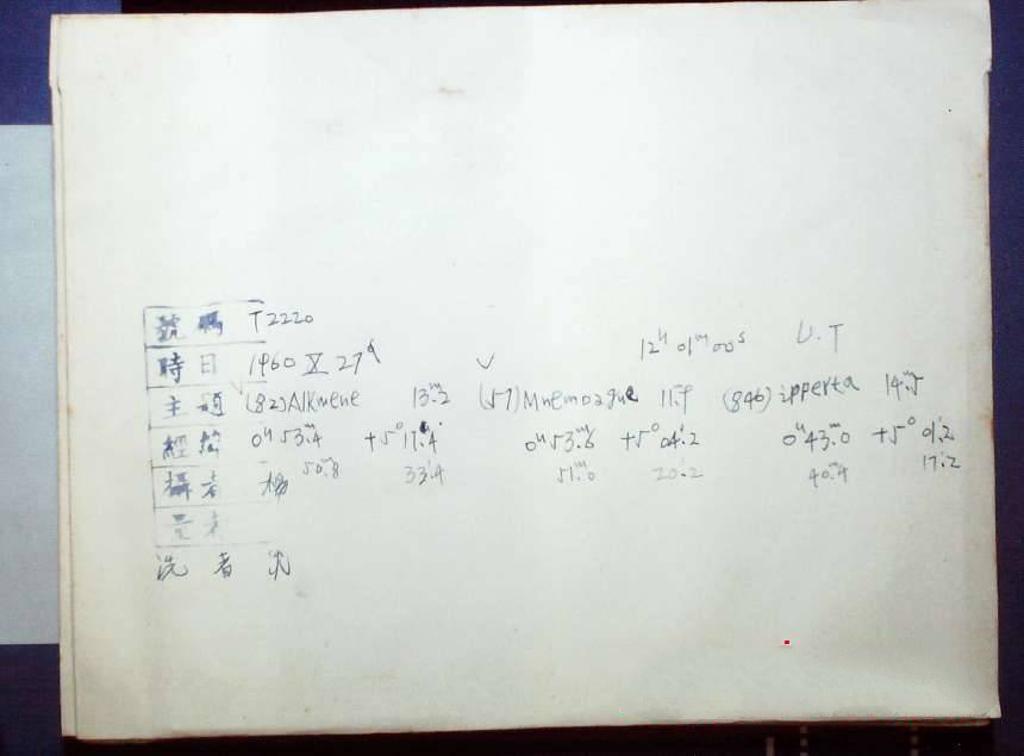 號碼 T2220
12ʰ 01ᵐ 00ˢ U.T
時日 1960 X 27ᵈ
主題 (82)Alkmene 13ᵐ.2 (57)Mnemosyne 11ᵐ.9 (846)ipperta 14ᵐ.5
經緯 0ʰ 53ᵐ.4 +5° 17'.4 0ʰ 53ᵐ.6 +5° 04'.2 0ʰ 43ᵐ.0 +5° 01'.2
50ᵐ.8 33'.4 51ᵐ.0 20'.2 40ᵐ.4 17'.2
攝者 楊
者
洗者